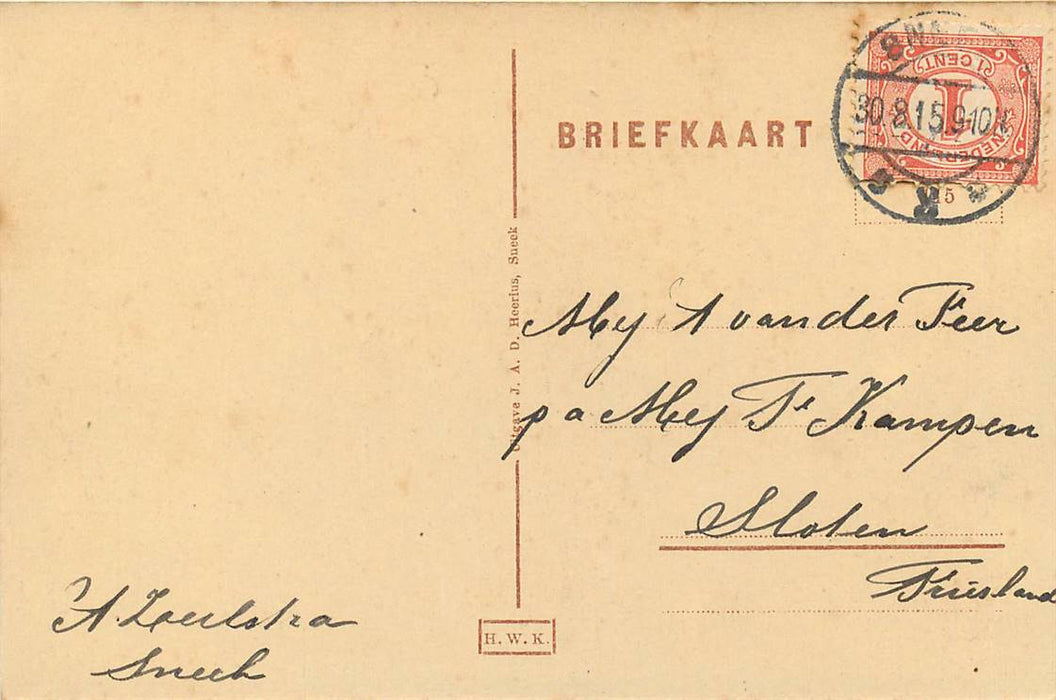 BRIEFKAART
SNEEK
30.8.15.9-10V
1 CENT
NEDERLAND
15
Uitgave J. A. D. Heerius, Sneek
Mej A van der Feer
p a Mej Fr Kampen
Sloten
Friesland
A. Zeelstra
Sneek
H. W. K.